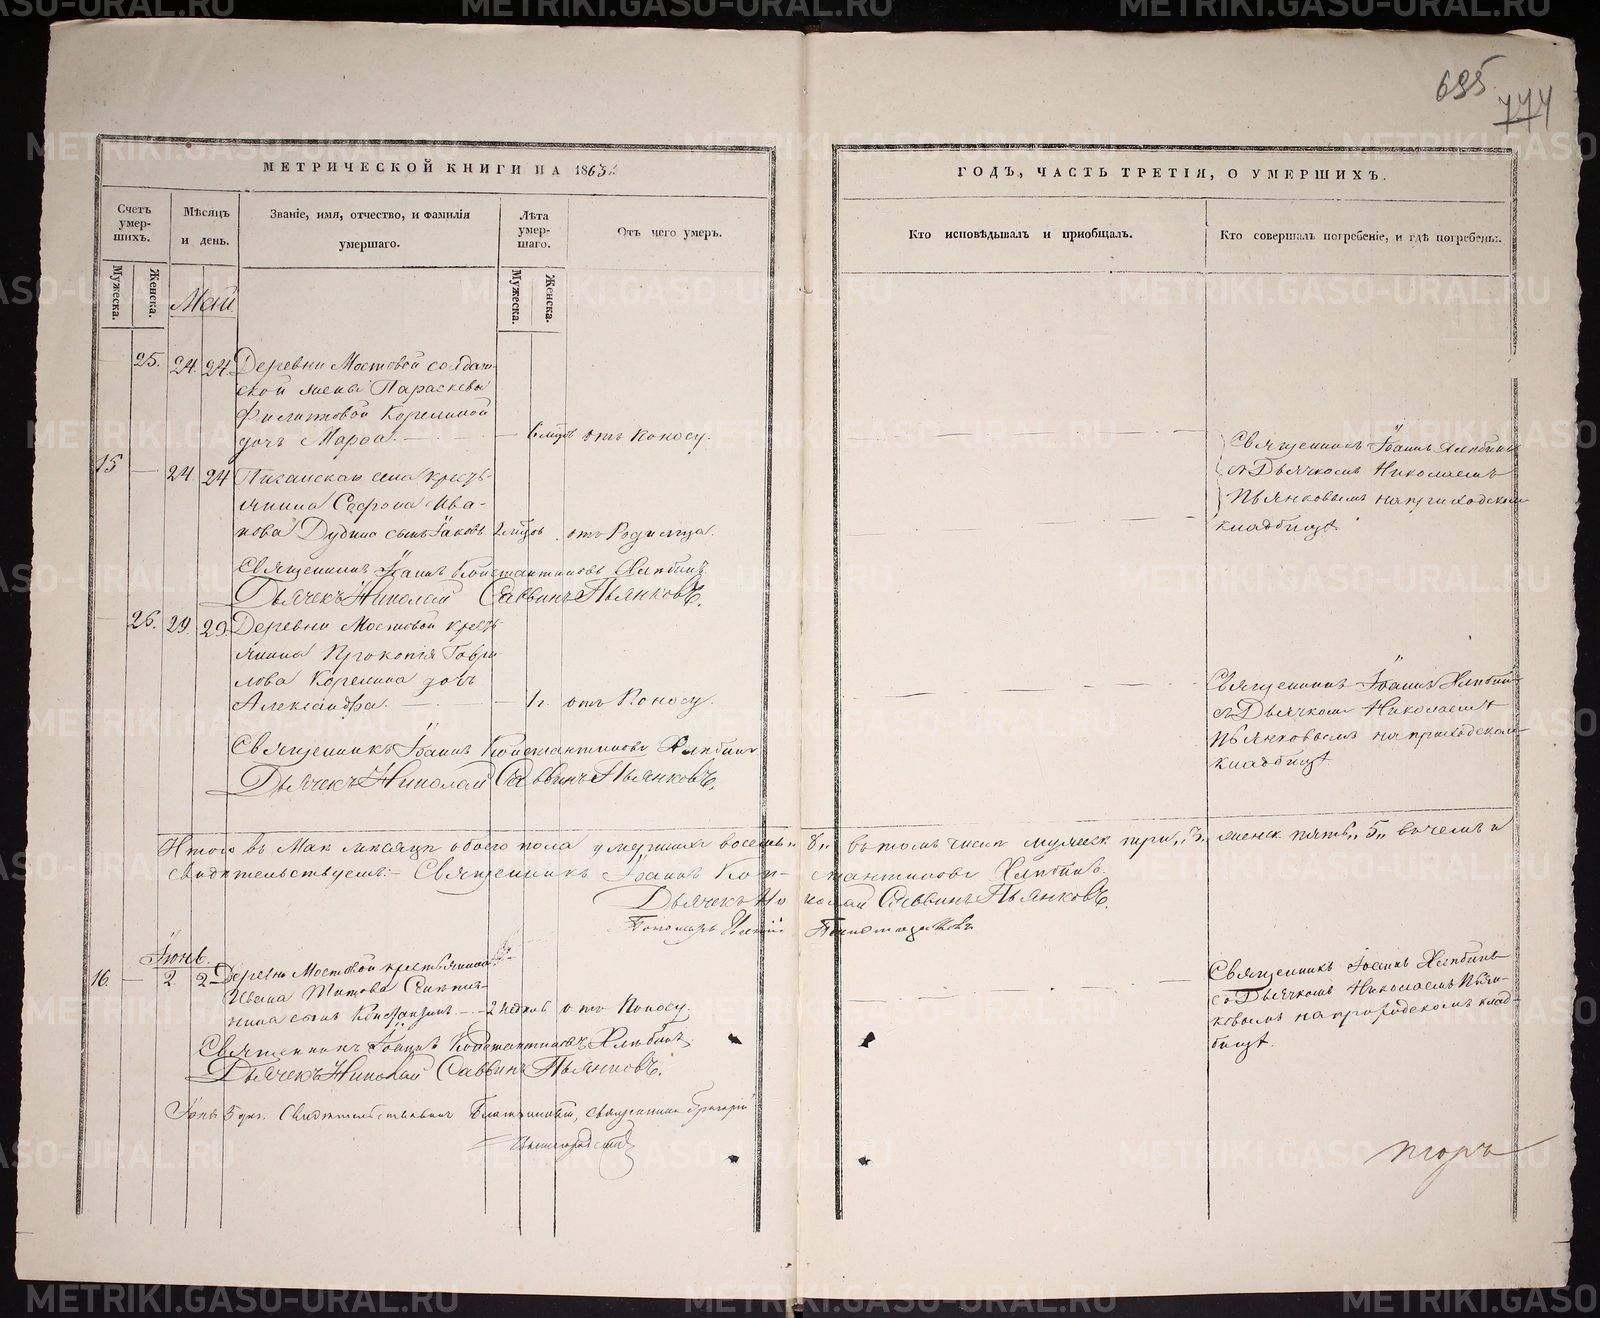 695
777
МЕТРИЧЕСКОЙ КНИГИ НА 1863.
ГОДЪ, ЧАСТЬ ТРЕТІЯ, О УМЕРШИХЪ.
Счетъ умер-шихъ.
Мѣсяцъ и день.
Званіе, имя, отчество, и фамилія умершаго.
Лѣта умер-шаго.
Отъ чего умеръ.
Кто исповѣдывалъ и пріобщалъ.
Кто совершалъ погребеніе, и гдѣ погребенъ.
Мужеска.
Женска.
Мужеска.
Женска.
Май
25. 24 24 Деревни Мостовой солдат-
ской жены Параскевы
Филиповой Корелиной
дочь Марѳа. 6 мцовъ отъ поносу.
Священникъ Іоаннъ Хлѣбинъ
съ Дьячкомъ Николаемъ
Пьянковымъ на приходскомъ
кладбищѣ
15 24 24 села кресть-
янина Сафрона Ива-
нова Дудина сынъ Іаковъ 2 мцовъ отъ Родимца.
Священникъ Іоаннъ Константиновъ Хлѣбинъ.
Дьячекъ Николай Саввинъ Пьянковъ.
26. 29 29. Деревни Мостовой кресть
янина Прокопія Гаври
лова Корелина дочь
Александра. 1 г. отъ Поносу.
Священникъ Іоаннъ Хлѣбинъ
съ Дьячкомъ Николаемъ
Пьянковымъ на приходскомъ
кладбищѣ
Священникъ Іоаннъ Константиновъ Хлѣбинъ
Дьячекъ Николай Саввинъ Пьянковъ.
Итого въ Маѣ мѣсяцѣ обоего пола умершихъ восемь „8„ въ томъ числѣ мужеск три „3„ женск пять „5„ в чемъ и
свидѣтельствуемъ: Священникъ Іоаннъ Кон-стантиновъ Хлѣбинъ.
Дьячекъ Николай Саввинъ Пьянковъ.
Пономарь
Іюнь.
16. 2 2 Деревни Мостовой крестьянина
Ивана Титова
нина сынъ 2 недѣль отъ Поносу.
Священникъ Іоаннъ Хлѣбинъ
съ Дьячкомъ Николаемъ Пьян-
ковымъ на приходскомъ клад-
бищѣ.
Священникъ Іоаннъ Константиновъ Хлѣбинъ.
Дьячекъ Николай Саввинъ Пьянковъ.
Іюня 5 дня. Свидѣтельствовалъ Благочинный, священникъ Григорій
METRIKI.GASO-URAL.RU